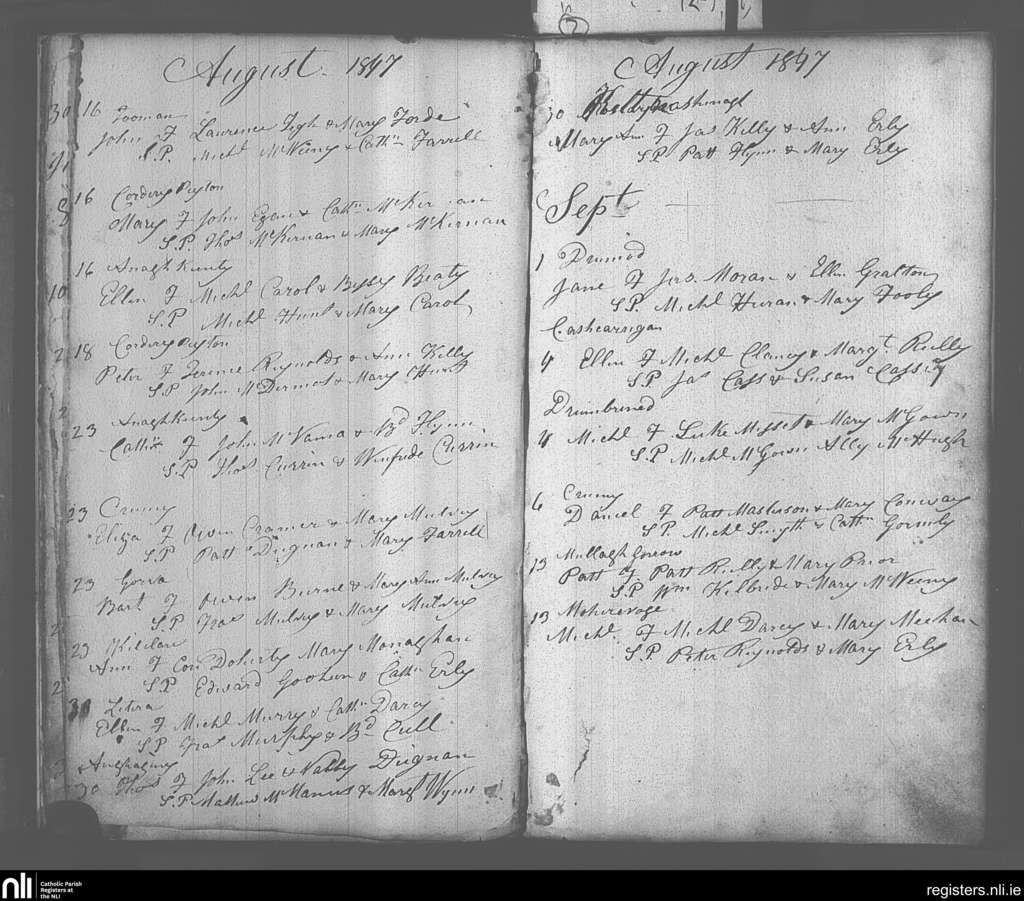 August 1847
16 Tooman
John of Lawrence Tigh & Mary Forde
S.P. Michl McKiny & Cathn Farrell
16 Cordery Peyton
Mary of John Egan & Cathn McKiernan
S.P. Thos McKernan & Mary McKernan
16 Anagh Kunty
Ellen of Michl Carol & Byby Beaty
S.P Michl Hunt & Mary Carol
18 Cordery Peyton
Peter of Terence Reynolds & Ann Kelly
S.P John McDermot & Mary Hunt
Anaghkunty
23 Cathn of John McVama & Bd Flynn
S.P Thos Currin & Winfride Currin
23 Crumy
Eliza of Owen Cramer & Mary Mulvey
S.P Patt Duignan & Mary Farrell
23 Gorva
Bart of Owen Burne & Mary Ann Mulvey
S.P Fras Mulvey & Mary Mulvey
23 Kilclare
Ann of Con Doherty Mary Monaghan
S.P Edward Goohen & Cathn Erly
30 Litra
Ellen of Michl Murry & Cathn Darcy
S.P Fras Murphy & Bd Cull
30 Thos of John Lee & Nabby Duignan
S.P. Mathew McManus & Margt Wynn
August 1847
30
Mary Ann of Jas Kelly & Ann Erly
S.P Patt Flynn & Mary Erly
Sept
1 Drumod
Jane of Jas. Moran & Ellen Gralton
S.P. Michl Huran & Mary Fooly
Cashcarnigan
4 Ellen of Michl Clancy & Margt Reilly
S.P Jas Cass & Susan Cassidy
Drumbrined
4 Michl of Luke Misset & Mary McGown
S.P Michl McGown Ally McHugh
6 Crumy
Daniel of Patt Masterson & Mary Conway
S.P. Michl Smyth & Cathn Gormly
13 Mullaghgorrow
Patt of Patt Reilly & Mary Prior
S.P Wm Kilbride & Mary McWeeny
13 Moherevoge
Michl. of Michl Darcy & Mary Meehan
S.P. Peter Reynolds & Mary Erly
nli Catholic Parish Registers at the NLI
registers.nli.ie